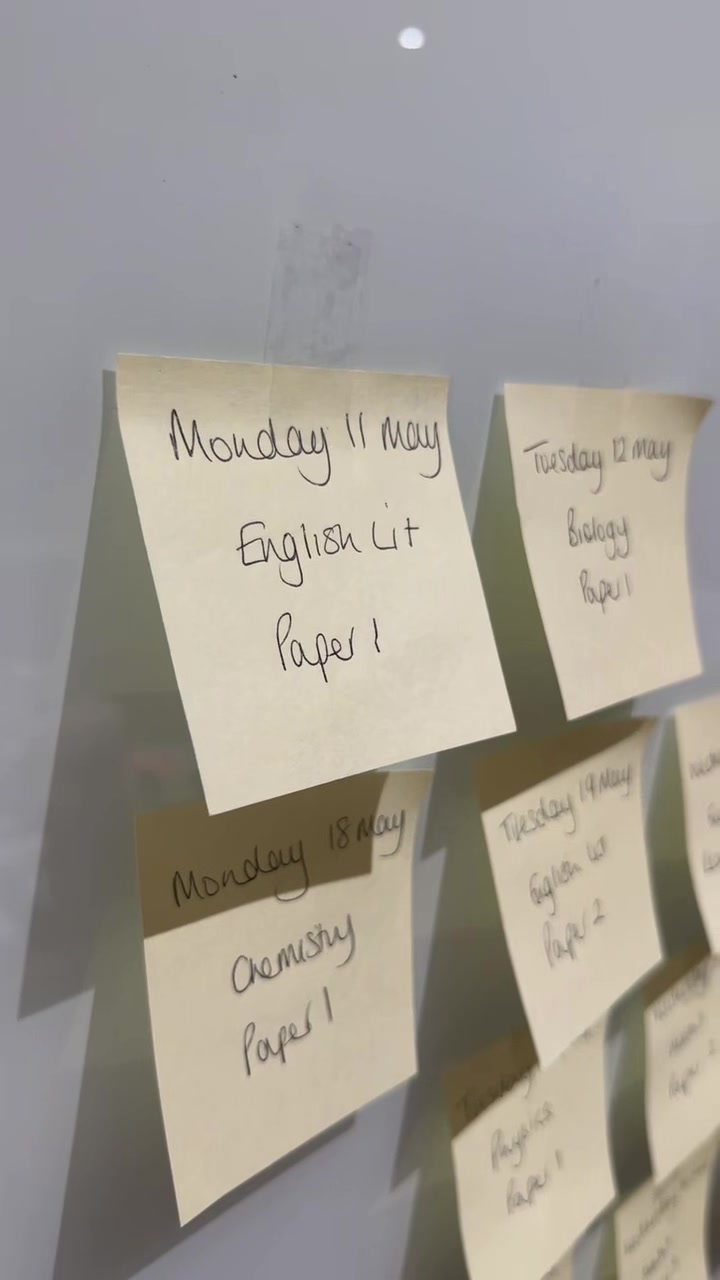 Monday 11 May
English Lit
Paper 1
Tuesday 12 May
Biology
Paper 1
Monday 18 May
Chemistry
Paper 1
Tuesday 19 May
English Lit
Paper 2
Tuesday
Physics
Paper 1
Paper 2